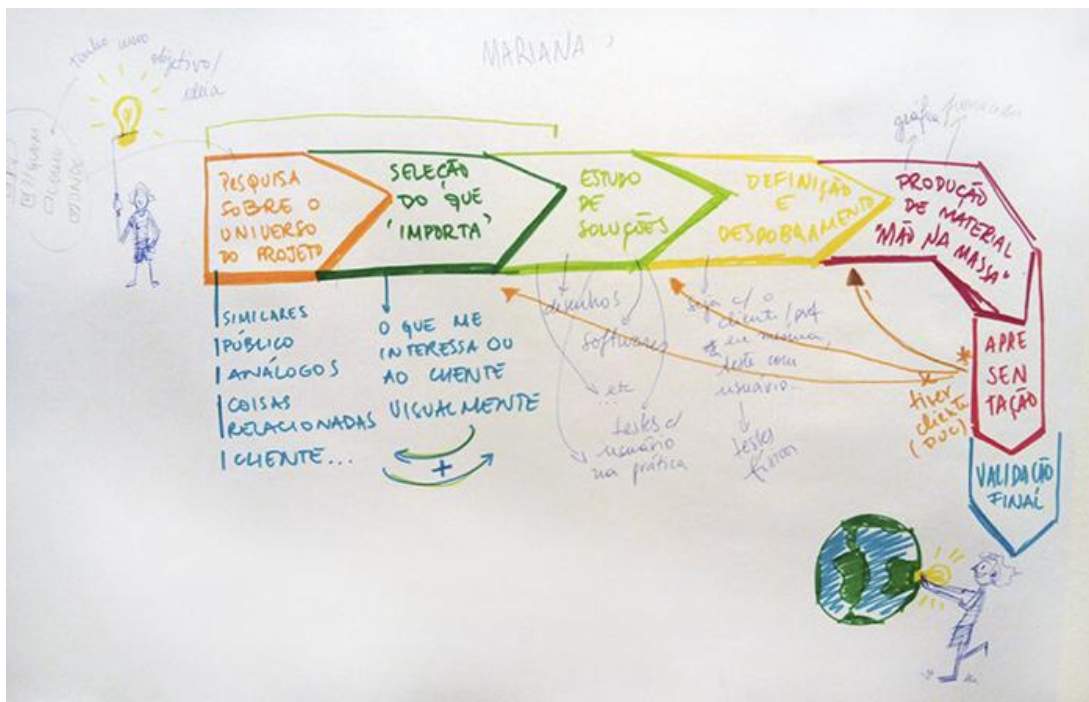 MARIANA
objetivo/
ideia
PESQUISA
SOBRE O
UNIVERSO
DO PROJETO
SELEÇÃO
DO QUE
"IMPORTA"
ESTUDO
DE
SOLUÇÕES
DEFINIÇÃO
E
DESDOBRAMENTO
gráfica/
PRODUÇÃO
DE MATERIAL
"MÃO NA
MASSA"
APRE
SEN
TAÇÃO
VALIDAÇÃO
FINAL
SIMILARES
PÚBLICO
ANÁLOGOS
COISAS
RELACIONADAS
CLIENTE...
O QUE ME
INTERESSA OU
AO CLIENTE
VISUALMENTE
+
desenhos
softwares
etc
testes c/
usuário
na prática
seja c/ o
cliente/prof
eu mesma,
teste com
usuário...
testes
físicos
* se
tiver
cliente
(PUC)
*